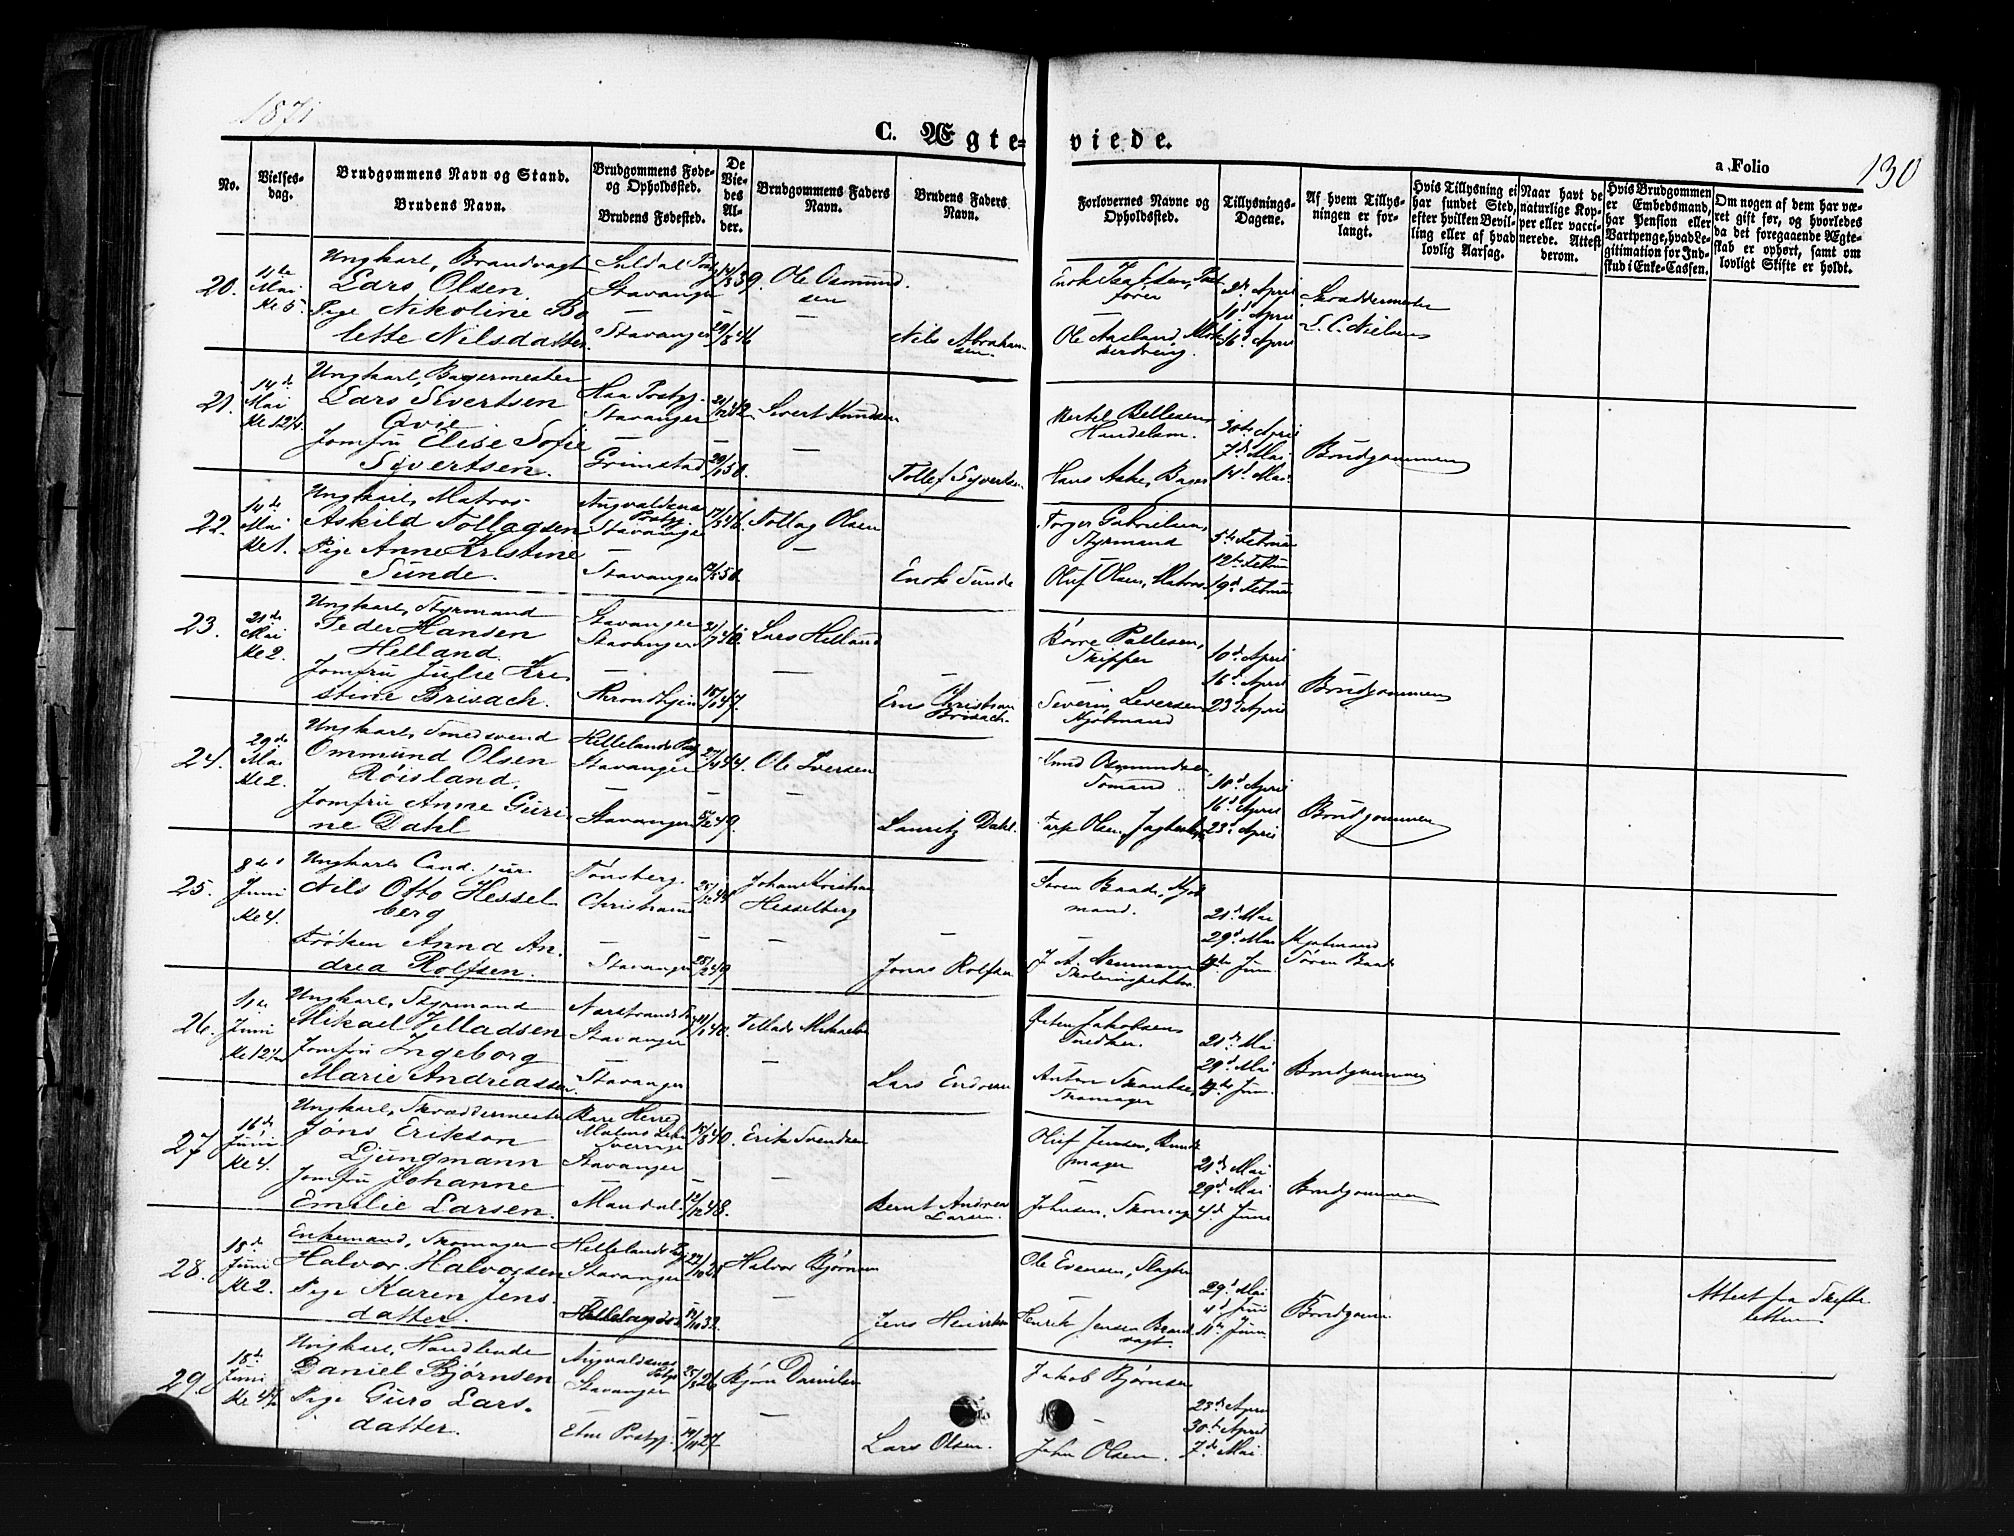 1871
C. Ægteviede.
a. Folio 130
No.
Vielsesdag.
Brudgommens Navn og Stand.
Brudens Navn.
Brudgommens Føde- og Opholdssted.
Brudens Fødested.
De Viedes Alder.
Brudgommens Faders Navn.
Brudens Faders Navn.
Forlovernes Navne og Opholdssted.
Tillysnings-Dagene.
Af hvem Tillysningen er forlangt.
Hvis Tillysning ei har fundet Sted, efter hvilken Bevilling eller af hvad lovlig Aarsag.
Naar havt de naturlige Kopper eller vaccinerede. Attest derom.
Hvis Brudgommen er Embedsmand, har Pension eller Vartpenge, hvad Legitimation for Indskud i Enke-Cassen.
Om nogen af dem har været gift før, og hvorledes da det foregaaende Ægteskab er ophørt, samt om lovligt Skifte er holdt.
20.
Mai
Kl 5.
Ungkarl, Brandvagt
Lars Olsen.
Pige Nikoline Bo
lette Nilsdatter.
Suldal
Stavanger
Stavanger
Ole Osmund
sen
Nils Abraham
sen.
Ole Aaland
2d April
10d April
16d April
Skræddermester
L. C. Nielsen
21.
14d
Mai
Kl 12¼
Ungkarl, Bagermester
Lars Sivertsen
Qvie
Jomfru Elise Sofie
Syvertsen.
Haa Pstgj.
Stavanger
Grimstad
Sivert Knudsen
Tollef Syvertsen
Bertel Bellesen
Handelsm.
Hans Aske, Bager
30te April
7d Mai
14d Mai
Brudgommen
22.
14de
Mai
Kl 1.
Ungkarl, Matros
Askild Tollagsen
Pige Anne Kristine
Sunde.
Augvaldsnæs
Pstgj.
Stavanger
Stavanger
Tollag Olsen
Enok Sunde
Torger Gabrielsen,
Styrmand
Oluf Olsen, Matros
5te Februar
12te Februar
19d Februar
23.
21de
Mai
Kl 2.
Ungkarl, Styrmand
Peder Hansen
Helland.
Jomfru Julie Kri
stine Brisach.
Stavanger
Stavanger
Throndhjem
Lars Helland
Christian
Brisach.
Børre Pallesen,
Skipper
Severin Leversen
Kjøbmand
10d April
16d April
23d April
Brudgommen
24.
29de
Mai
Kl 2.
Ungkarl, Smedsvend
Ommund Olsen
Røisland.
Jomfru Anne Guri
ne Dahl
Hellelands Pstgj
Stavanger
Stavanger
Ole Iversen
Lauritz Dahl.
Knud Osmundsen,
Tomand.
10d April
16d April
23d April
Brudgommen
25.
8de
Juni
Kl 4.
Ungkarl Cand. jur.
Nils Otto Hessel
berg
Frøken Anna An
drea Rolfsen.
Tønsberg.
Christiania
Stavanger
Johan Kristian
Hesselberg
Jonas Rolfsen
Søren Baade, Kjøb
mand.
Skoleinspektør
21d Mai
29d Mai
4de Juni
Kjøbmand
Søren Baade
26.
11te
Juni
Kl 12½
Ungkarl, Styrmand
Mikael Velladsen
Jomfru Ingeborg
Marie Andreassen
Nærstrands
Stavanger
Stavanger
Vellads Mikaelsen
Lars Endresen
Jakobsen
Snedker.
Skomager
21d Mai
29d Mai
4de Juni
Brudgommen
27
16de
Juni
Kl 4.
Ungkarl, Skræddermester
Jöns Erikson
Ljungmann
Jomfru Johanne
Emilie Larsen.
Bare Herred
Malmø Lehn
Sverrige
Stavanger
Mandal.
Erik Svendsen
Bernt Andreas
Larsen.
Oluf Jensen, Bundt
mager
Johnsen, Skomag
21d Mai
29d Mai
4d Juni
Brudgommen
28.
18de
Juni
Kl 2.
Enkemand, Skomager
Halvor Halvorsen
Pige Karen Jens
datter.
Hellelands Pstgj
Stavanger
Hellelands
Halvor Bjørnsen
Jens Henriksen
Ole Evensen, Slagter
Henrik Jensen Brand
vagt
29d Mai
4d Juni
11te Juni
Brudgommen
Attest fra Skifte
retten
29
18de
Juni
Ungkarl, Handlende
Daniel Bjørnsen
Pige Guro Lars
datter.
Augvaldsnæs
Pstgj
Stavanger
Etne Pstgj.
Bjørn Danielsen
Lars Olsen.
Jakob Bjørnsen
John Olsen.
23d April
30te April
7de Mai